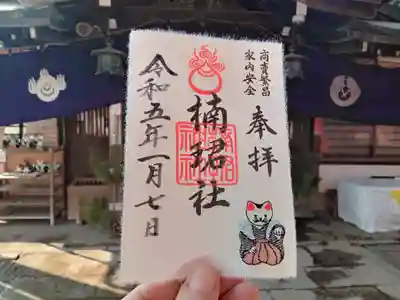 商売繁昌
家内安全
奉拝
楠珺社
令和五年一月七日